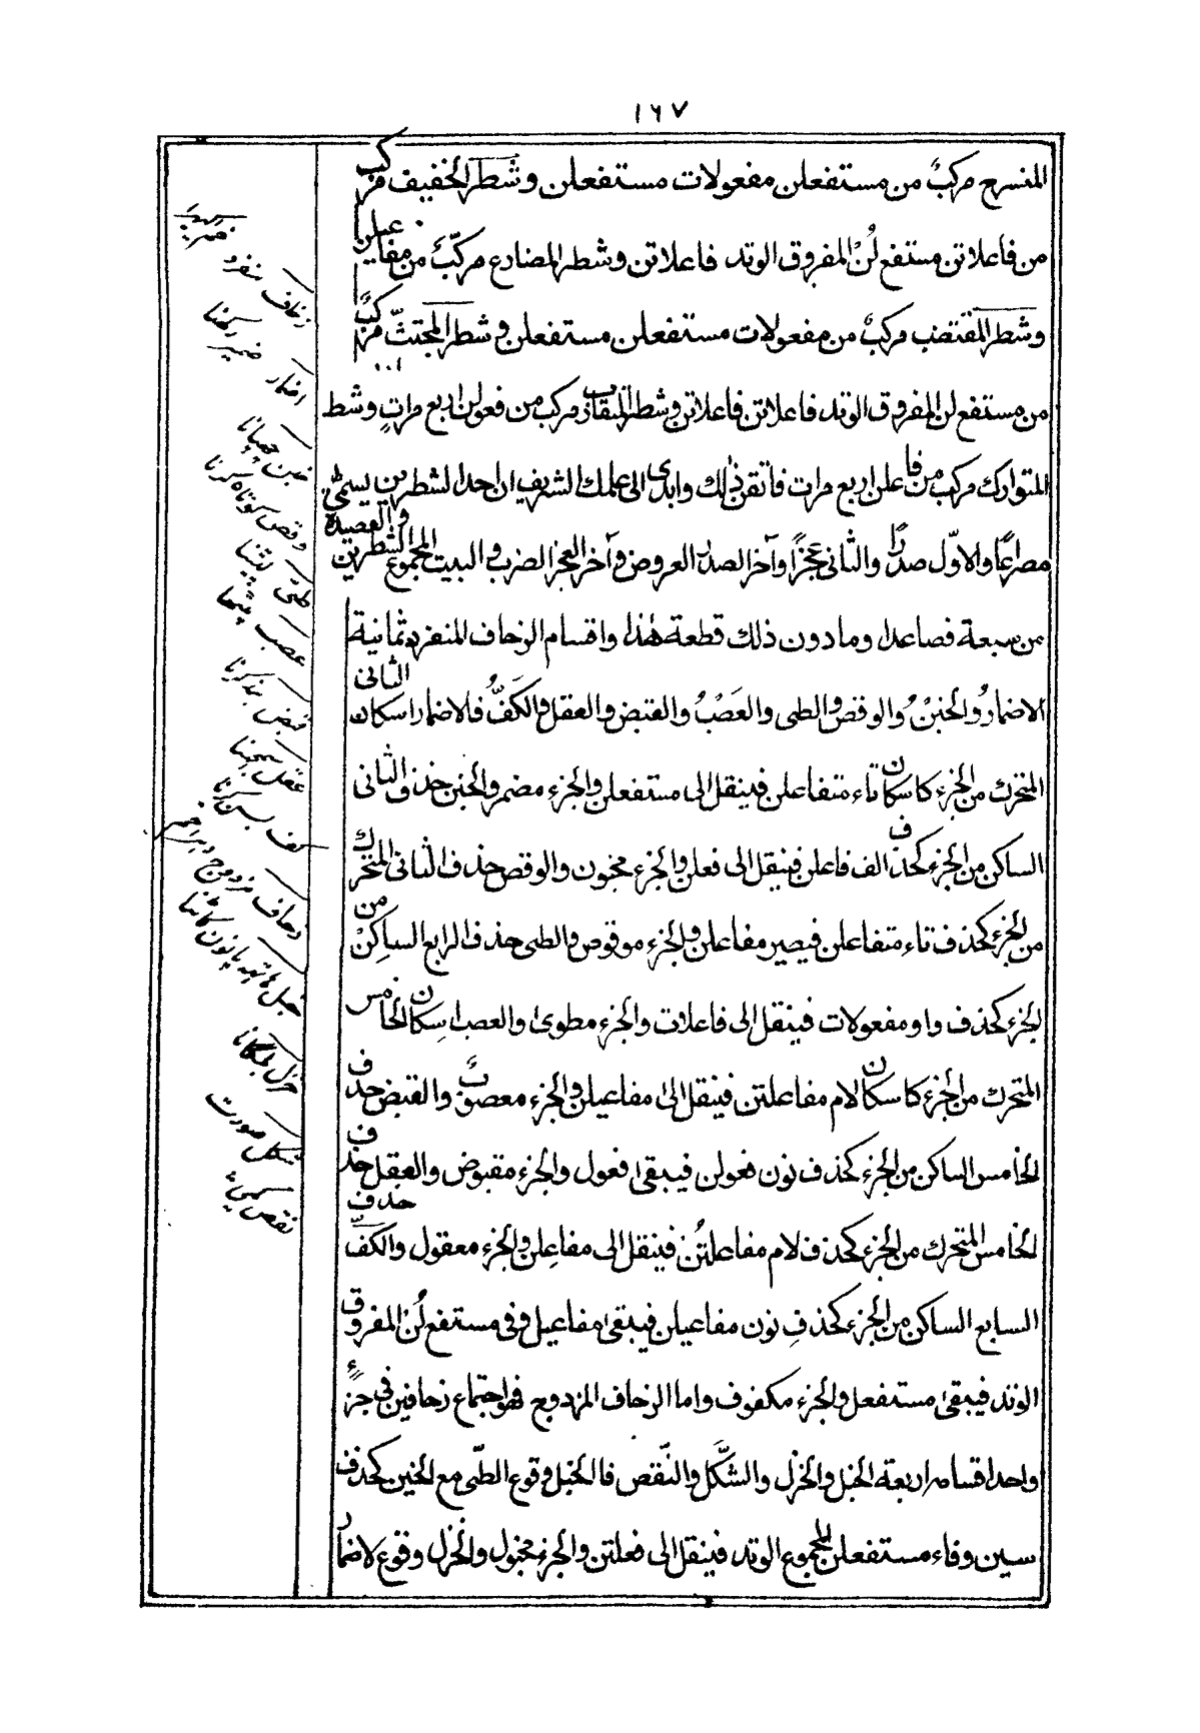 ١٦٧
المنسرح مركبٌ من مستفعلن مفعولات مستفعلن وشطر الخفيف مركب
من فاعلاتن مستفع لُنْ المفروق الوتد فاعلاتن وشطر المضارع مركّبٌ من مفاعيلن
وشطر المقتضب مركبٌ من مفعولات مستفعلن مستفعلن وشطر المجتثّ مركبٌ
من مستفع لن المفروق الوتد فاعلاتن فاعلاتن وشطر المتقارب مركب من فعولن اربع مراتٍ وشطر
المتوارك مركب من فاعلن اربع مرات فاتقن ذلك وابدى الى علمك الشريف ان احد الشطرين يسمىّ
مصراعًا والاوّل صدرًا والثانى عَجزًا وآخر الصدر العروض وآخر العجز الضرب والبيت المجموع الشطرين والقصيدة
من سبعة فصاعدا ومادون ذلك قطعة هٰذا واقسام الزحاف المنفرد ثمانية
الاضمارُ والخبنْ والوقص والطى والعَصْبُ والقبض والعقل والكَفُّ فالاضمار اسكان الثانى
المتحرك من الجزء كاسكان تاء متفاعلن فينقل الى مستفعلن والجزء مضمر والخبن حذف الثانى
الساكن من الجزء كحذف الف فاعلن فينقل الى فعلن والجزء مخبون والوقص حذف الثانى المتحرك
من الجزء كحذف تاء متفاعلن فيصير مفاعلن والجزء موقوص والطى حذف الرابع الساكنْ من
الجزء كحذف واو مفعولات فينقل الى فاعلات والجزء مطوى والعصب اسكان الخامس
المتحرك من الجزء كاسكان لام مفاعلتن فينقل الىٰ مفاعيلن والجزء معصوبٌ والقبض حذف
الخامس الساكن من الجزء كحذف نون فعولن فيبقى فعول والجزء مقبوض والعقل حذف
الخامس المتحرك من الجزء كحذف لام مفاعلتُن فينقل الى مفاعلن والجزء معقول والكفّ حذف
السابع الساكن من الجزء كحذفِ نون مفاعيلن فيبقى مفاعيل وفى مستفع لُنْ المفروق
الوتد فيبقى مستفعل والجزء مكفوف واما الزحاف المزدوج فهو اجتماع زحافين فى جزءٍ
واحد اقسامه اربعة الخبل والخزل والشَّكل والنّقص فالخبل وقوع الطىّ مع الخبن كحذف
سين وفاء مستفعلن المجموع الوتد فينقل الى فعلتن والجزء مخبول والخزل وقوع الاضمار
زحاف منفرد
اضمار ضمير ركهنا
خبن چهپانا
وقص كوتاه كرنا
طىّ لپٹنا
عصب پٹها
قبض بند كرنا
عقل سمجهنا
كف بس كرنا
زحاف مزدوج
خبل هاتهه پانون كاٹنا
خزل
شكل صورت
نقص كمى